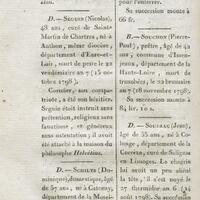 D. — SEGUIN (Nicolas),
48 ans, curé de Saint-
Martin de Chartres, né à
Authon, même diocèse,
département d'Eure-et-
Loir, mort de peste le 22
vendémiaire an 7 (13 octo-
bre 1798).
Cormier, son compa-
triote, a été son héritier.
Seguin était instruit sans
prétention, religieux sans
fanatisme, et généreux
sans ostentation; il avait
été attaché à la maison du
philosophe Helvétius.
D. — SCHILTZ (Do-
minique), domestique, âgé
de 57 ans, né à Catenay,
département de la Mosel-
pour l'enterrer.
Sa succession monte à
66 fr.
B. — SOUCHON (Pierre-
Paul), prêtre, âgé de 42
ans, commune
département de la
Haute-Loire, mort de
le 12 brumaire
an 7 (2 novembre 1798).
Sa succession monte à
84, 18, 10 s.
D. — SOUZEAU (Jean),
âgé de 35 ans, né à Co-
longe, département de la
Corrèze, curé de Solignac
en Limoges. Le chagrin
lui avait un peu aliéné
la tête, il s'est noyé le
27 thermidor an 6 (14
août 1798). Sa succession